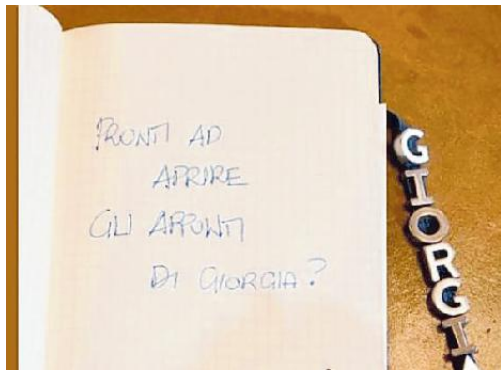 PRONTI AD
APRIRE
GLI APPUNTI
DI GIORGIA?
GIORGI